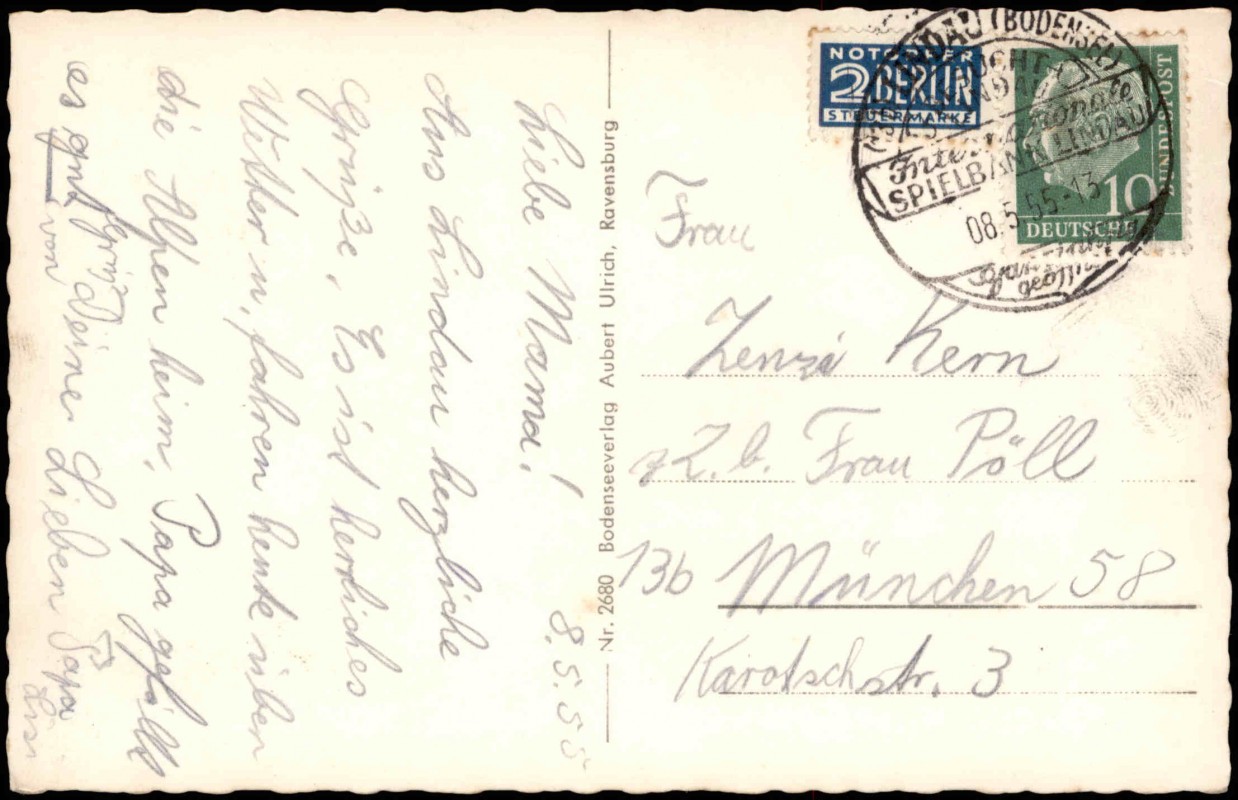 Liebe Mama! 8.5.55
Aus Lindau herzliche
Grüße, Es ist herrliches
Wetter u, fahren heute über
die Alpen heim, Papa gefällt
es gut
von Deinen Lieben Papa
Nr. 2680 Bodenseeverlag Aubert Ulrich, Ravensburg
NOTOPFER
2 BERLIN
STEUERMARKE
LINDAU (BODENSEE)
Internationale
SPIELBANK LINDAU
08.5.55-13
geöffnet
10
DEUTSCHE
BUNDESPOST
Frau
Zenzi Kern
z. b. Frau Pöll
13b München 58
str. 3